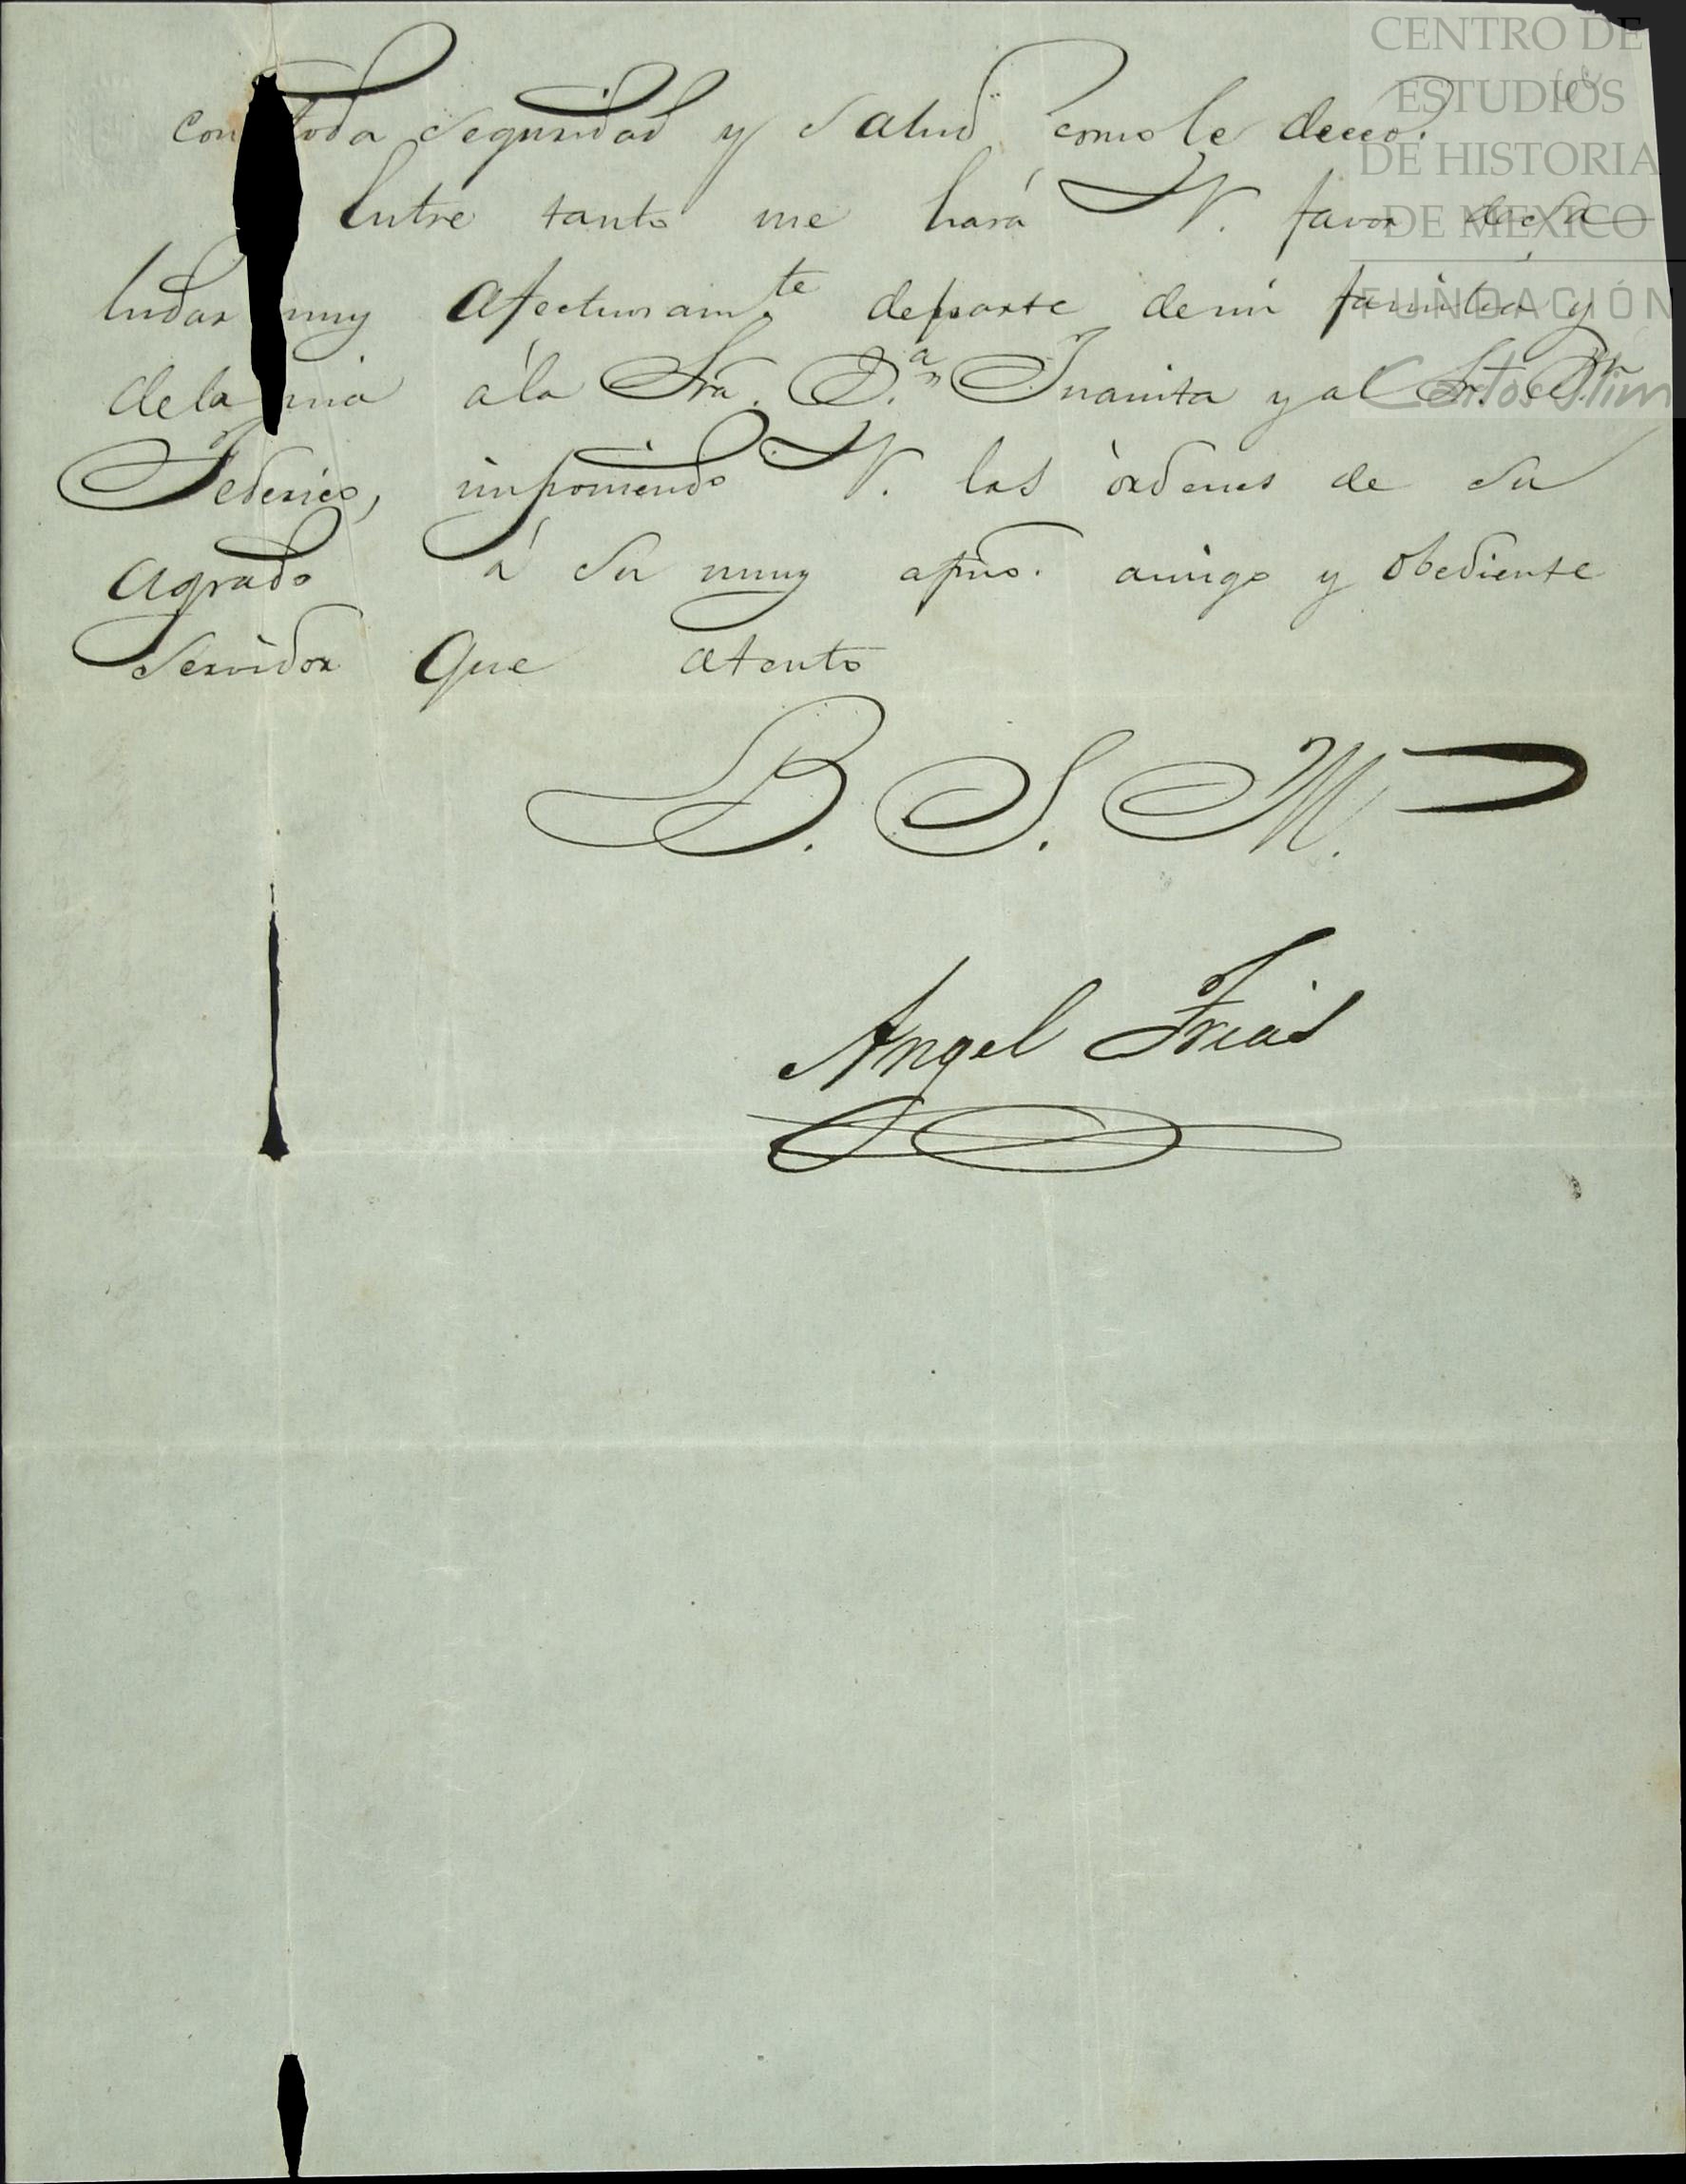 CENTRO DE
ESTUDIOS
DE HISTORIA
DE MEXICO
FUNDACIÓN
Carlos Slim
con toda seguridad y salud como le deceo.
Entre tanto me hará V. favor de sa
ludar muy afectuosam.te departe demi familia y
dela mia ála Sra. D.a Juanita y al Sr. Dn
Federico, imponiendo V. las órdenes de su
agrado á su muy afmo. amigo y obediente
servidor que atento
B. S. M.
Angel Frias